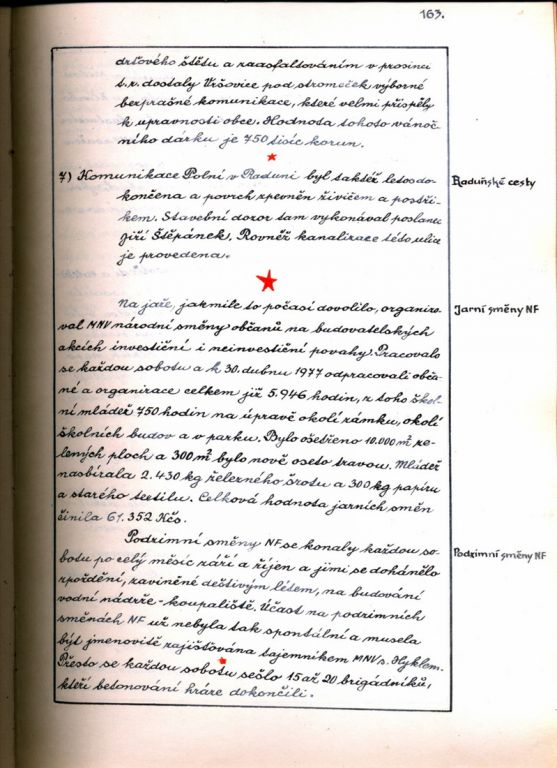 163.
drťového štětu a zaasfaltováním v prosinci
t.r. dostaly Vršovice pod stromeček výborné
bezprašné komunikace, které velmi přispěly
k úpravnosti obce. Hodnota tohoto vánoč-
ního dárku je 750 tisíc korun.
7) Komunikace Polní v Raduni byl taktéž letos do-
končena a povrch zpevněn živičem a postři-
kem. Stavební dozor tam vykonával poslanec
Jiří Štěpánek. Rovněž kanalizace této ulice
je provedena.
Raduňské cesty
Na jaře, jakmile to počasí dovolilo, organizo-
val MNV národní směny občanů na budovatelských
akcích investiční i neinvestiční povahy. Pracovalo
se každou sobotu a k 30. dubnu 1977 odpracovali obča-
né a organizace celkem již 5.946 hodin, z toho škol-
ní mládež 750 hodin na úpravě okolí zámku, okolí
školních budov a v parku. Bylo ošetřeno 10.000 m² ze-
lených ploch a 300 m² bylo nově oseto travou. Mládež
nasbírala 2.430 kg železného šrotu a 300 kg papíru
a starého textilu. Celková hodnota jarních směn
činila 61.352 Kčs.
Jarní směny NF
Podzimní směny NF se konaly každou so-
botu po celý měsíc září a říjen a jimi se dohánělo
zpoždění, zaviněné deštivým létem, na budování
vodní nádrže - koupaliště. Účast na podzimních
směnách NF už nebyla tak spontální a musela
být jmenovitě zajišťována tajemníkem MNV s. Hyklem.
Přesto se každou sobotu sešlo 15 až 20 brigádníků,
kteří betonování hráze dokončili.
Podzimní směny NF